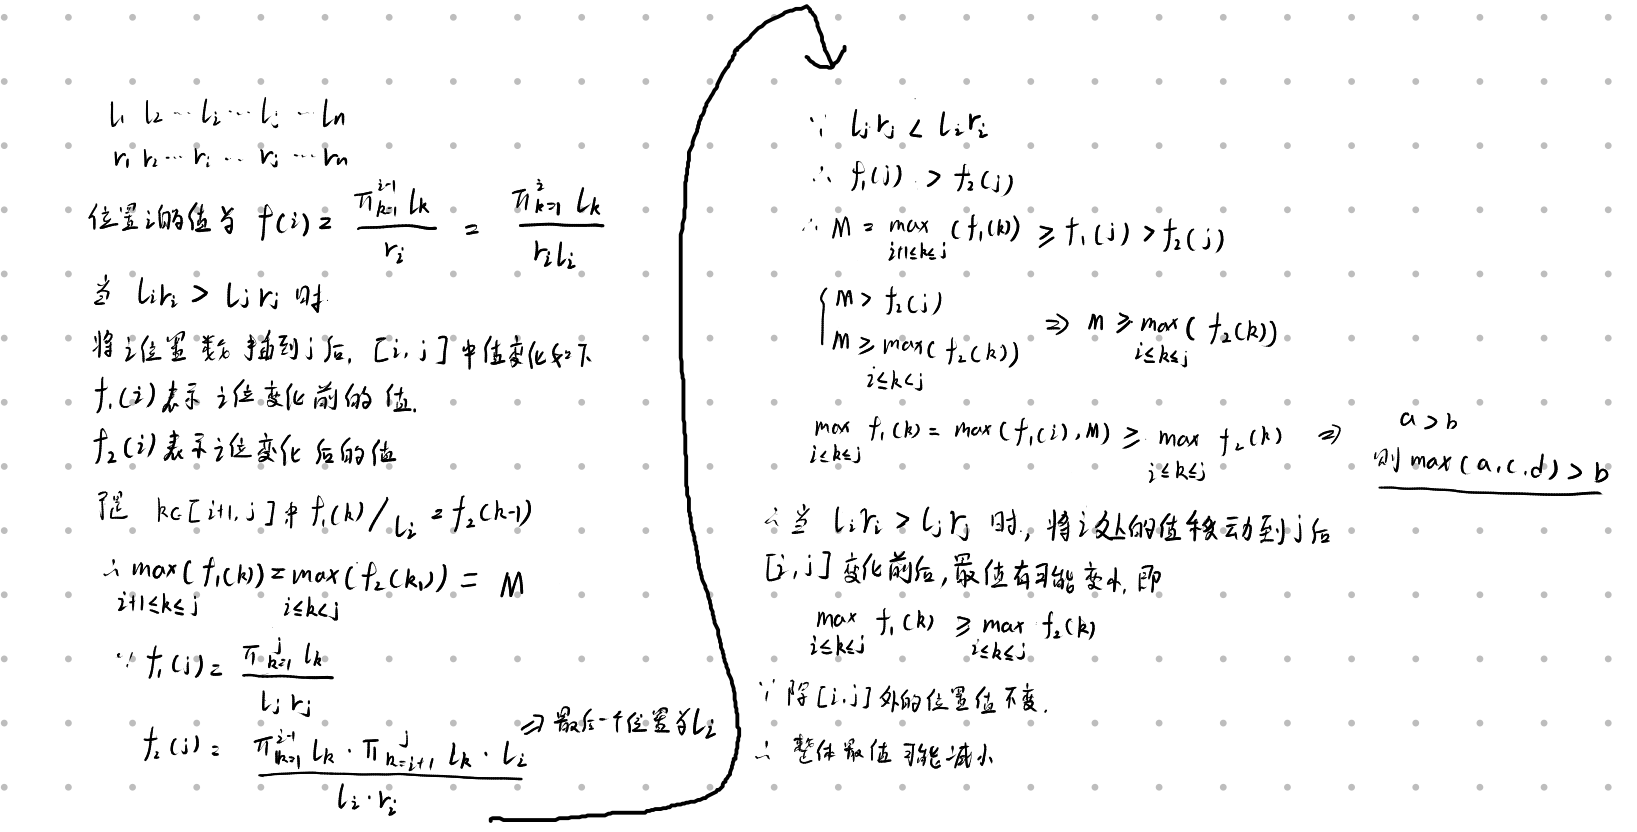 l₁ l₂ … lᵢ … lⱼ … lₙ
r₁ r₂ … rᵢ … rⱼ … rₙ
位置i的值为 f(i) = π_{k=1}^{i-1} lₖ / rᵢ = π_{k=1}^{i} lₖ / rᵢlᵢ
当 lᵢrᵢ > lⱼrⱼ 时
将i位置数插到j后, [i, j] 中值变化如下
f₁(i)表示i位变化前的值.
f₂(i)表示i位变化后的值
k∈[i+1, j]中 f₁(k)/lᵢ = f₂(k-1)
∴ max_{i+1≤k≤j}(f₁(k)) = max_{i≤k<j}(f₂(k)) = M
∵ f₁(j) = π_{k=1}^{j} lₖ / lⱼrⱼ
f₂(j) = π_{k=1}^{i-1} lₖ · π_{k=i+1}^{j} lₖ · lᵢ / lᵢ·rᵢ ⇒ 最后一个位置为lᵢ
∵ lⱼrⱼ < lᵢrᵢ
∴ f₁(j) > f₂(j)
∴ M = max_{i+1≤k≤j}(f₁(k)) ≥ f₁(j) > f₂(j)
{ M > f₂(j)
M ≥ max_{i≤k<j}(f₂(k)) ⇒ M ≥ max_{i≤k≤j}(f₂(k))
max_{i≤k≤j} f₁(k) = max(f₁(i), M) ≥ max_{i≤k≤j} f₂(k) ⇒ a>b
则 max(a,c,d) > b
∴ 当 lᵢrᵢ > lⱼrⱼ 时, 将i处的值移动到j后
[i, j] 变化前后, 最值有可能变小, 即
max_{i≤k≤j} f₁(k) ≥ max_{i≤k≤j} f₂(k)
∵ 除[i, j]外的位置值不变.
∴ 整体最值可能减小